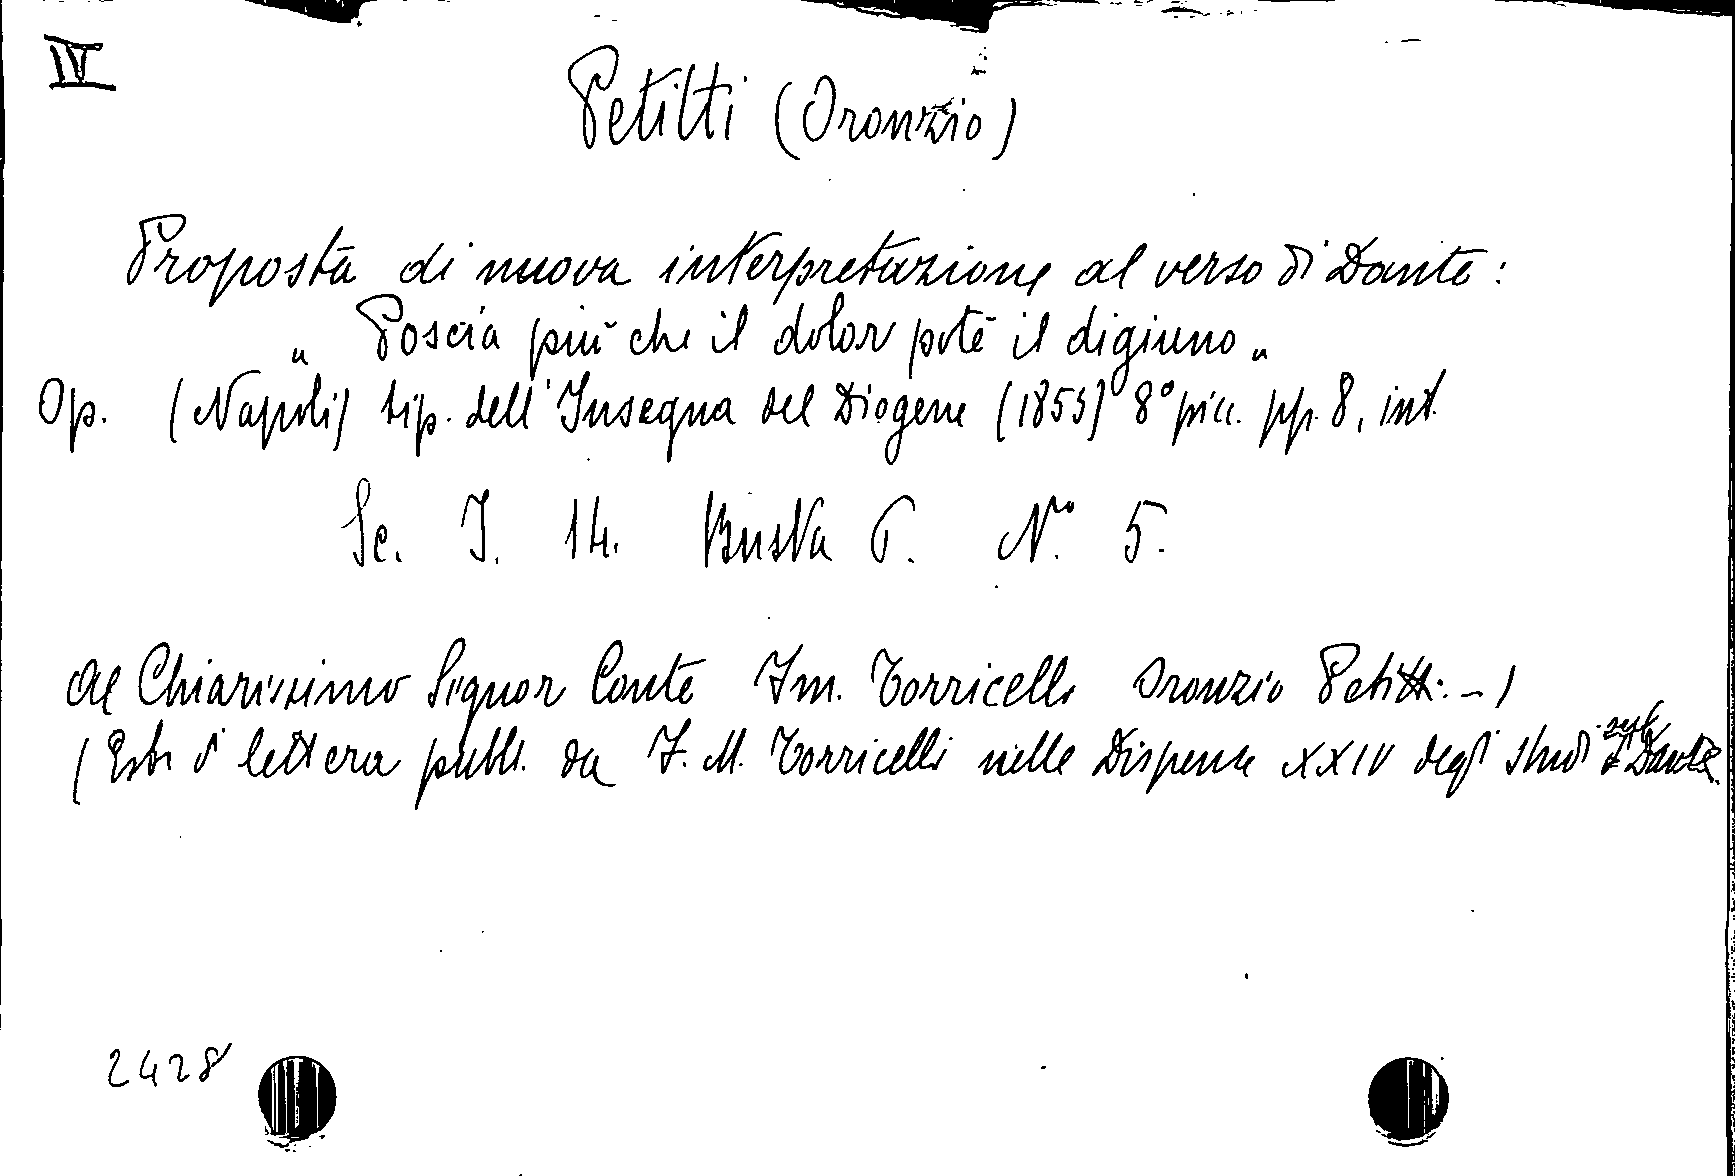 IV
Petitti (Oronzio)
Proposta di nuova interpretazione al verso di Dante:
" Poscia più che il dolor potè il digiuno "
Op. (Napoli) tip. dell'Insegna del Diogene (1855) 8° picc. pp. 8, int.
Sc. I. 14. Busta 6. N.° 5.
Al Chiarissimo Signor Conte Im. Torricelli Oronzio Petitti. -)
( lettera pubbl. da F. M. Torricelli nelle Dispense XXIV degli studi Dante.
2428